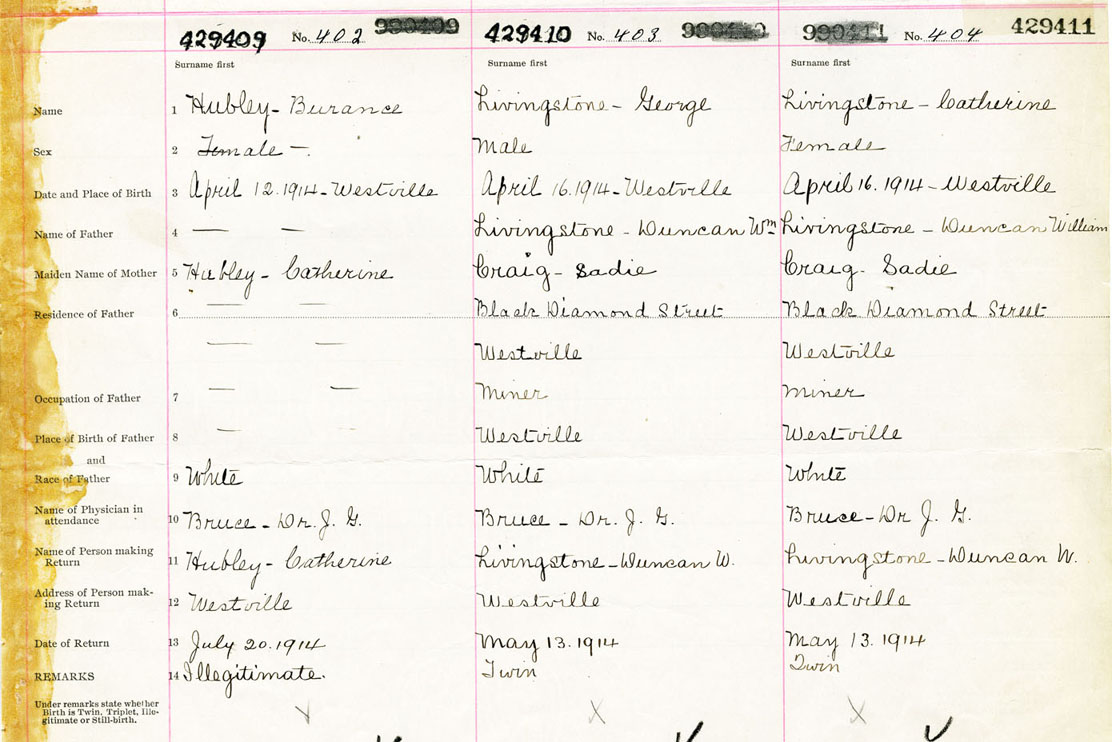 429409 No. 402 429410 No. 403 No. 404 429411
Surname first Surname first Surname first
Name 1 Hubley - Burance Livingstone - George Livingstone - Catherine
Sex 2 Female - Male Female
Date and Place of Birth 3 April 12. 1914 - Westville April 16. 1914 - Westville April 16. 1914 - Westville
Name of Father 4 — — Livingstone - Duncan Wm Livingstone - Duncan William
Maiden Name of Mother 5 Hubley - Catherine Craig - Sadie Craig - Sadie
Residence of Father 6 — — Black Diamond Street Black Diamond Street
— — Westville Westville
Occupation of Father 7 — — Miner Miner
Place of Birth of Father 8 — — Westville Westville
and
Race of Father 9 White White White
Name of Physician in
attendance 10 Bruce - Dr. J. G. Bruce - Dr. J. G. Bruce - Dr J. G.
Name of Person making
Return 11 Hubley - Catherine Livingstone - Duncan W. Livingstone - Duncan W.
Address of Person mak-
ing Return 12 Westville Westville Westville
Date of Return 13 July 20. 1914 May 13. 1914 May 13. 1914
REMARKS 14 Illegitimate. Twin Twin
Under remarks state whether
Birth is Twin, Triplet, Ille-
gitimate or Still-birth.